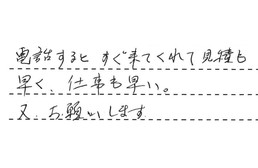 電話すると すぐ来てくれて見積も
早く、仕事も早い。
又、お願いします